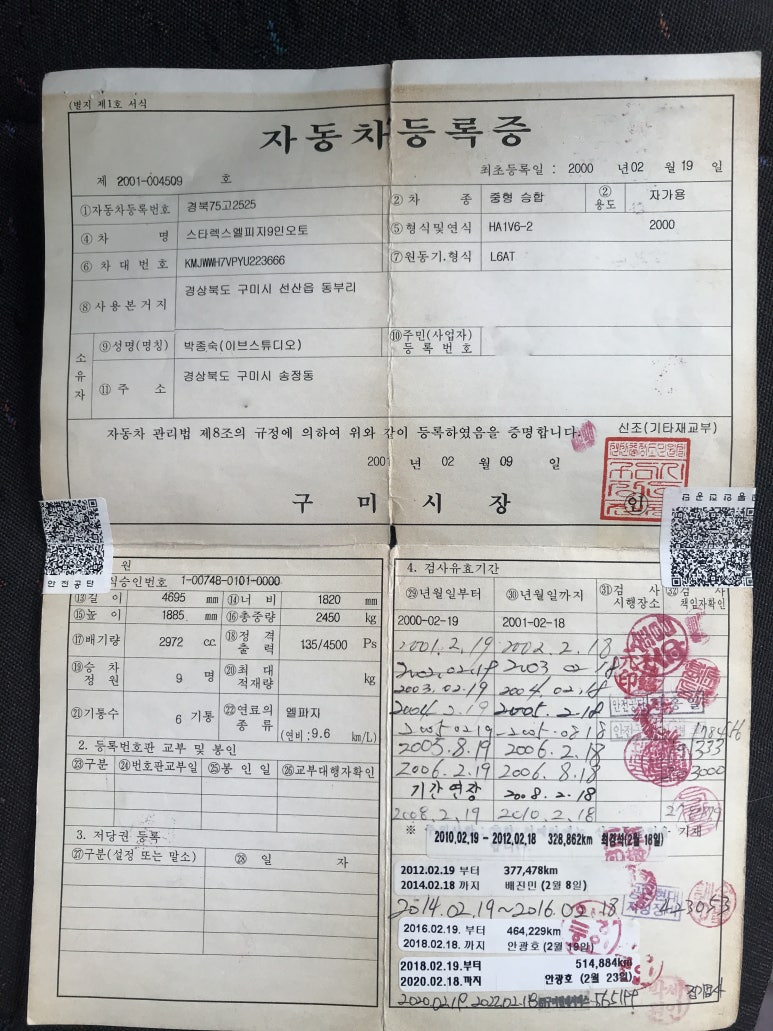 (별지 제1호 서식
자동차등록증
제 2001-004509 호 최초등록일 : 2000 년 02 월 19 일
①자동차등록번호 경북75고2525 ②차 종 중형 승합 ②용도 자가용
④차 명 스타렉스엘피지9인오토 ⑤형식및연식 HA1V6-2 2000
⑥차대번호 KMJWWH7VPYU223666 ⑦원동기.형식 L6AT
⑧사용본거지 경상북도 구미시 선산읍 동부리
소유자 ⑨성명(명칭) 박종숙(이브스튜디오) ⑩주민(사업자)등록번호
⑪주 소 경상북도 구미시 송정동
자동차 관리법 제8조의 규정에 의하여 위와 같이 등록하였음을 증명합니다. 신조(기타재교부)
2001 년 02 월 09 일
구 미 시 장 인
안전공단
원
승인번호 1-00748-0101-0000
⑬길이 4695 mm ⑭너비 1820 mm
⑮높이 1885 mm ⑯총중량 2450 kg
⑰배기량 2972 cc ⑱정격출력 135/4500 Ps
⑲승차정원 9 명 ⑳최대적재량 kg
㉑기통수 6 기통 ㉒연료의 종류 엘파지 (연비:9.6 km/L)
2. 등록번호판 교부 및 봉인
㉓구분 ㉔번호판교부일 ㉕봉인일 ㉖교부대행자확인
3. 저당권 등록
㉗구분(설정 또는 말소) ㉘일 자
4. 검사유효기간
㉙년월일부터 ㉚년월일까지 ㉛검사시행장소 ㉜검사책임자확인
2000-02-19 2001-02-18
2001.2.19 2002.2.18
2002.02.19 2003 02 18
2003.02.19 2004.02.18
2004.2.19 2005.2.18
2005 02 19 2005.08 18
2005.8.19 2006.2.18
2006.2.19 2006.8.18
기간연장 2008.2.18
2008.2.19 2010.2.18
※ 기재
2010,02,19 - 2012,02,18 328,862km 최경석(2월 18일)
2012.02.19 부터 377,478km
2014.02.18 까지 배진민 (2월 8일)
2014.02.19~2016.02.18 423053
2016.02.19. 부터 464,229km
2018.02.18. 까지 안광호 (2월 19일)
2018.02.19.부터 514,884km
2020.02.18.까지 안광호 (2월 23일)
2020 02.19 2022.02.18